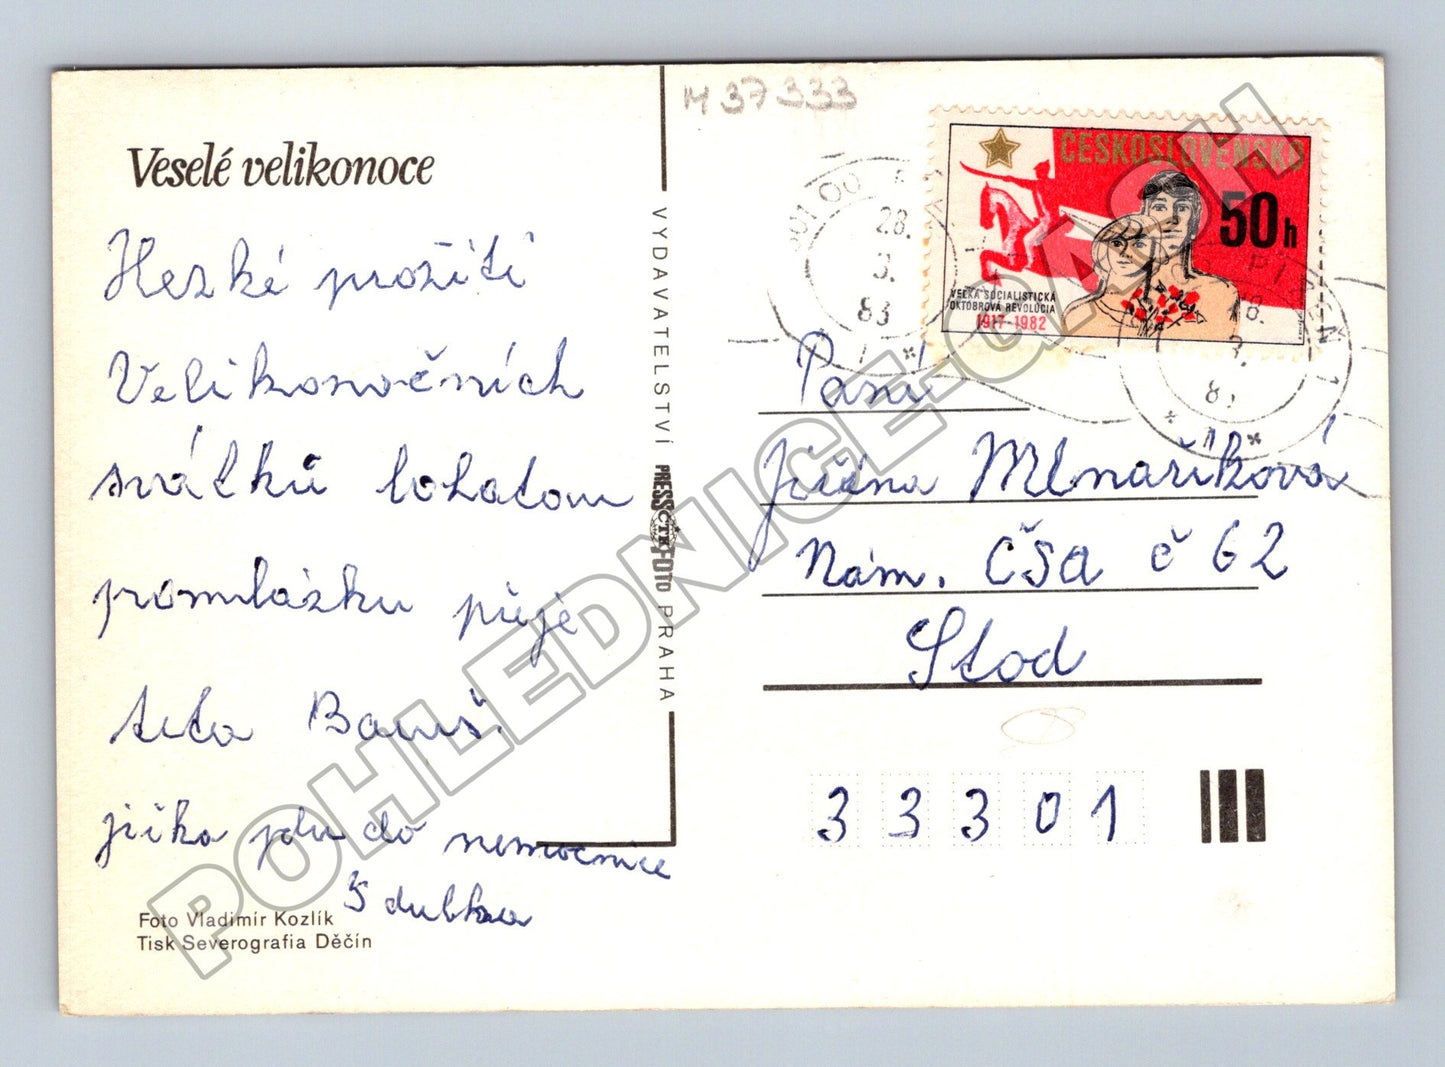 M 37 333
Veselé velikonoce
Hezké prožití
Velikonočních
svátků bohatou
pomlázku přeje
teta
jiřka jdu do nemocnice
5 dubna
Foto Vladimír Kozlík
Tisk Severografia Děčín
VYDAVATELSTVÍ PRESSFOTO PRAHA
ČTK
ČESKOSLOVENSKO
50h
VEĽKÁ SOCIALISTICKÁ
OKTÓBROVÁ REVOLÚCIA
1917-1982
28.
3.
83
1
PLZEŇ 1
28.
3.
Paní
Jiřina Mlnaříková
Nám. ČSA č 62
Stod
33301
POHLEDNICE-CASH